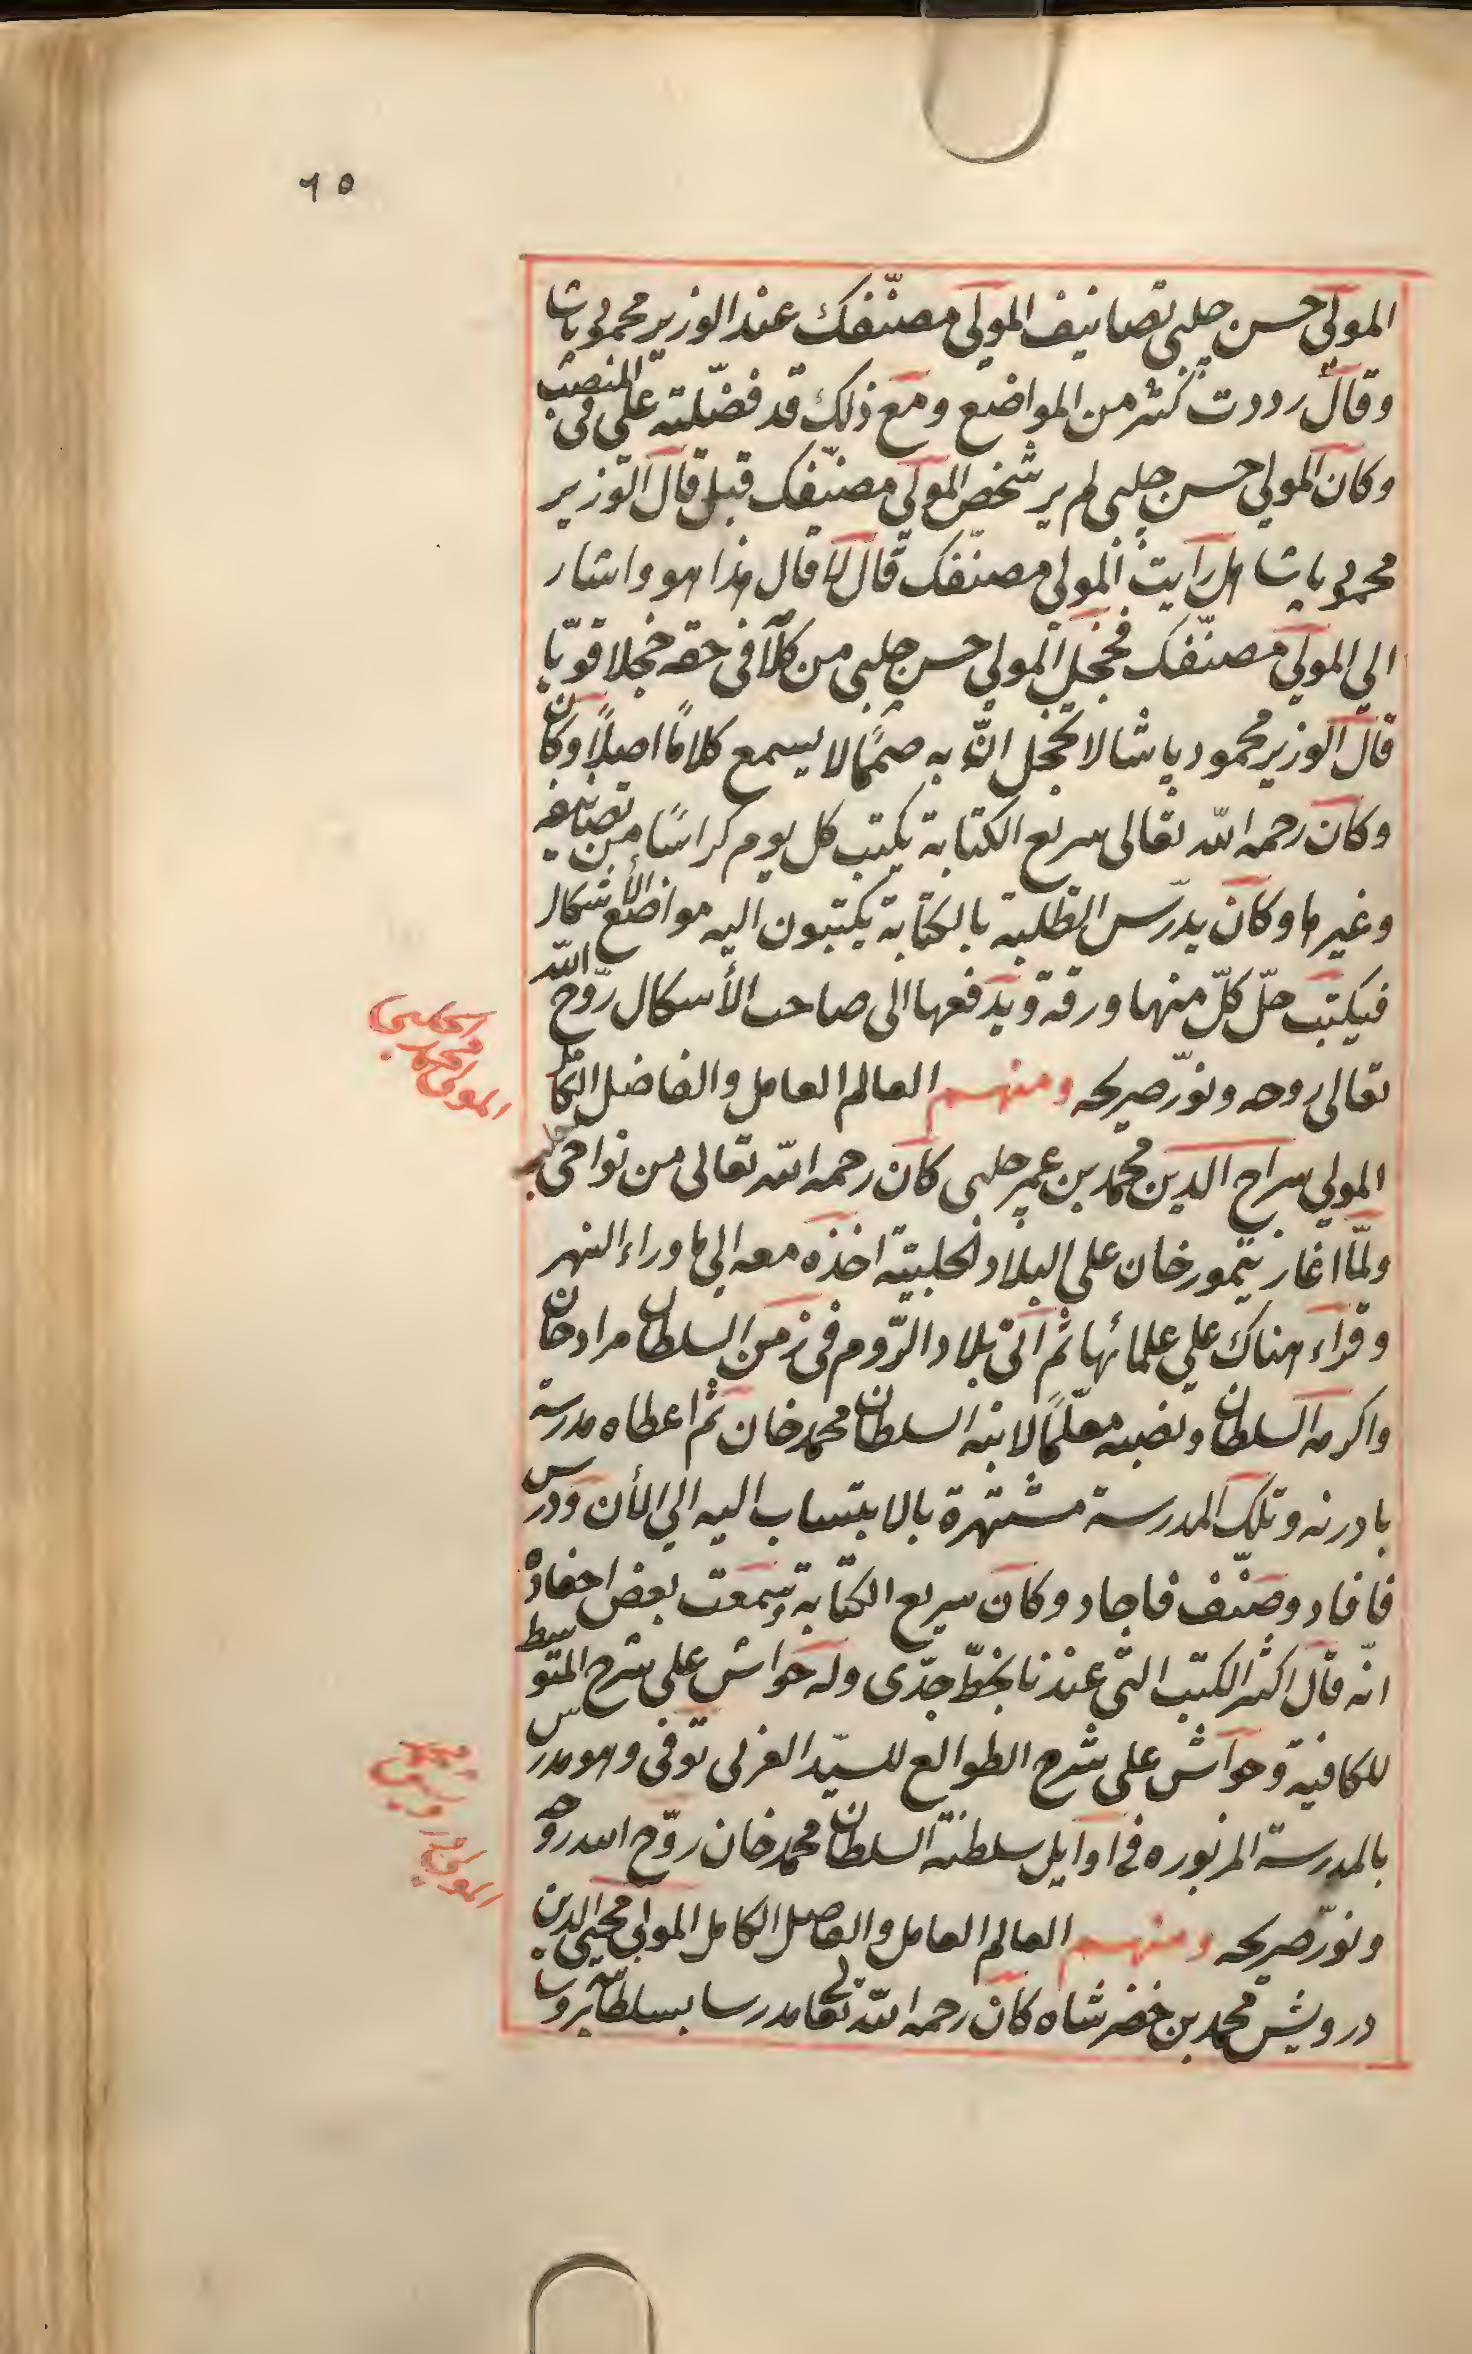 ٦٥
المولى حسن چلبى تصانيف المولى مصنّفك عند الوزير محمود پاشا
وقال رددت كثر من المواضع ومع ذلك قد فضّلته على فى المنصب
وكان المولى حسن چلبى لم ير شخص المولى مصنّفك قبل قال الوزير
محمود پاشا هل رأيت المولى مصنّفك قال لا قال هذا هو واشار
الى المولى مصنّفك فخجل المولى حسن چلبى من كلامه فى حقه خجلا قويّا
قال الوزير محمود پاشا لا تخجل انّ به صممًا لا يسمع كلامًا اصلًا وكان
وكان رحمه الله تعالى سريع الكتابة يكتب كل يوم كراسًا من تصانيفه
وغيرها وكان يدرّس الطلبة بالكتابة يكتبون اليه مواضع الأشكال
فيكتب حلّ كلّ منها ورقة ويدفعها الى صاحب الأسكال روّح الله
تعالى روحه ونوّر ضريحه ومنهم العالم العامل والفاضل الكامل
المولى سراج الدين محمد بن عمر حلبى كان رحمه الله تعالى من نواحى حلب
ولمّا اغار تيمور خان على البلاد الحلبيّة اخذه معه الى ما وراء النهر
وقراء هناك على علمائها ثم اتى بلاد الرّوم فى زمن السلطان مراد خان
واكرمه السلطان ونصبه معلّمًا لابنه السلطان محمد خان ثم اعطاه مدرسة
بادرنه وتلك المدرسة مشتهرة بالانتساب اليه الى الأن ودرس
فافاد وصنّف فاجاد وكان سريع الكتابة وسمعت بعض احفاده
انّه قال اكثر الكتب التى عندنا بخطّ جدّى وله حواش على شرح المتوسط
للكافية وحواش على شرح الطوالع للسيّد العبرى توفى وهو مدرس
بالمدرسة المزبوره فى اوايل سلطنة السلطان محمد خان روّح الله روحه
ونوّر ضريحه ومنهم العالم العامل والفاضل الكامل المولى محيى الدين
درويش محمد بن خضر شاه كان رحمه الله تعالى مدرسا بسلطانية بروسا
المولى محمد الحلبى
المولى درويش محمد